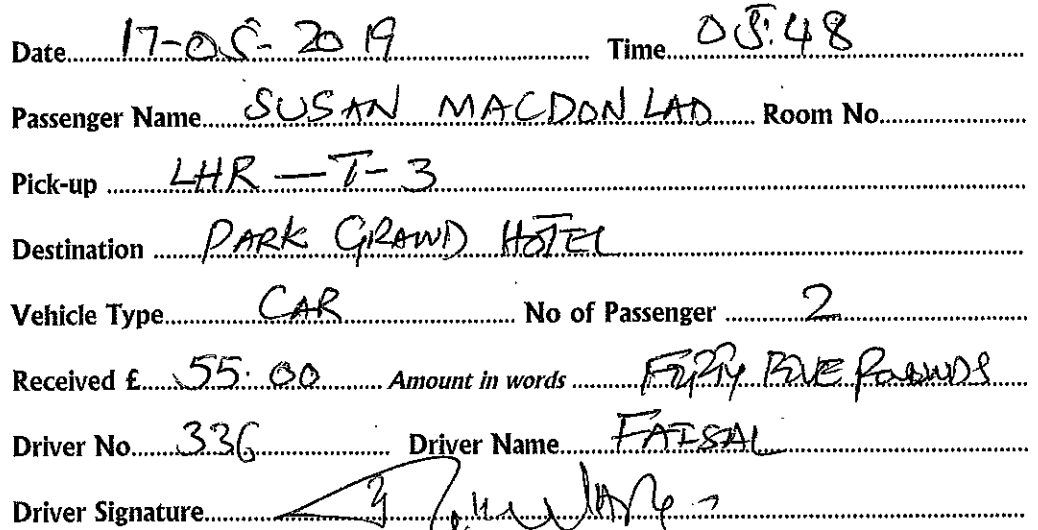 Date 17-05-2019 Time 05:48
Passenger Name SUSAN MACDONLAD Room No
Pick-up LHR - T - 3
Destination PARK GRAND HOTEL
Vehicle Type CAR No of Passenger 2
Received £ 55.00 Amount in words FIFTY FIVE POUNDS
Driver No 336 Driver Name FAISAL
Driver Signature